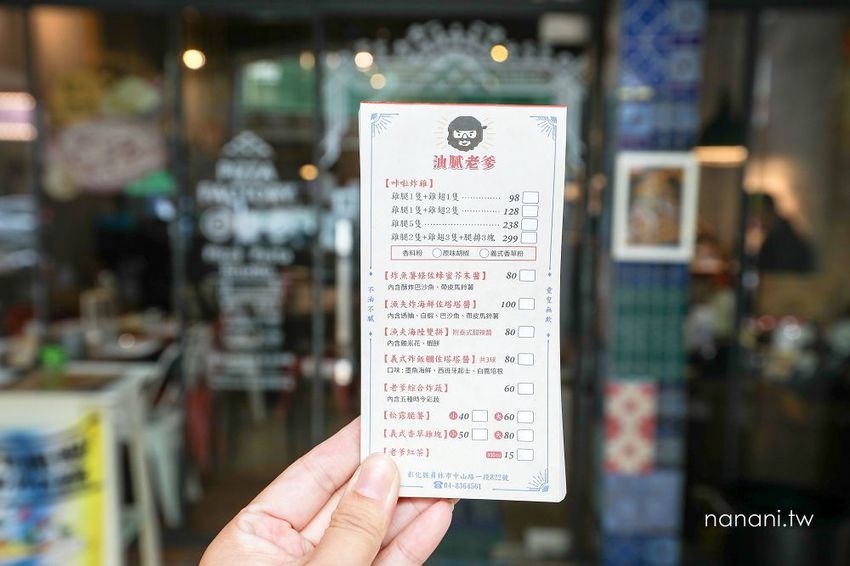 油膩老爹
【咔啦炸雞】
雞腿1隻+雞翅1隻 ………… 98
雞腿1隻+雞翅2隻 ………… 128
雞腿5隻 ………… 238
雞腿2隻+雞翅3隻+腿排3塊 299
香料粉 ○原味胡椒 ○義式香草粉
【炸魚薯條佐蜂蜜芥末醬】 80
內含酥炸巴沙魚、帶皮馬鈴薯
【漁夫炸海鮮佐塔塔醬】 100
內含透抽、白蝦、巴沙魚、帶皮馬鈴薯
【漁夫海陸雙拼】附泰式甜辣醬 80
內含雞米花、蝦餅
【義式炸飯糰佐塔塔醬】共3球 80
口味:墨魚海鮮、西班牙起士、白醬培根
【老爹綜合炸蔬】 60
內含五種時令彩蔬
【松露脆薯】 小40 大60
【義式香草雞塊】 小50 大80
【老爹紅茶】 15
彰化縣員林市中山路一段822號
☎04-8364561
不油不膩
童叟無欺
PIZZA
FACTORY
nanani.tw